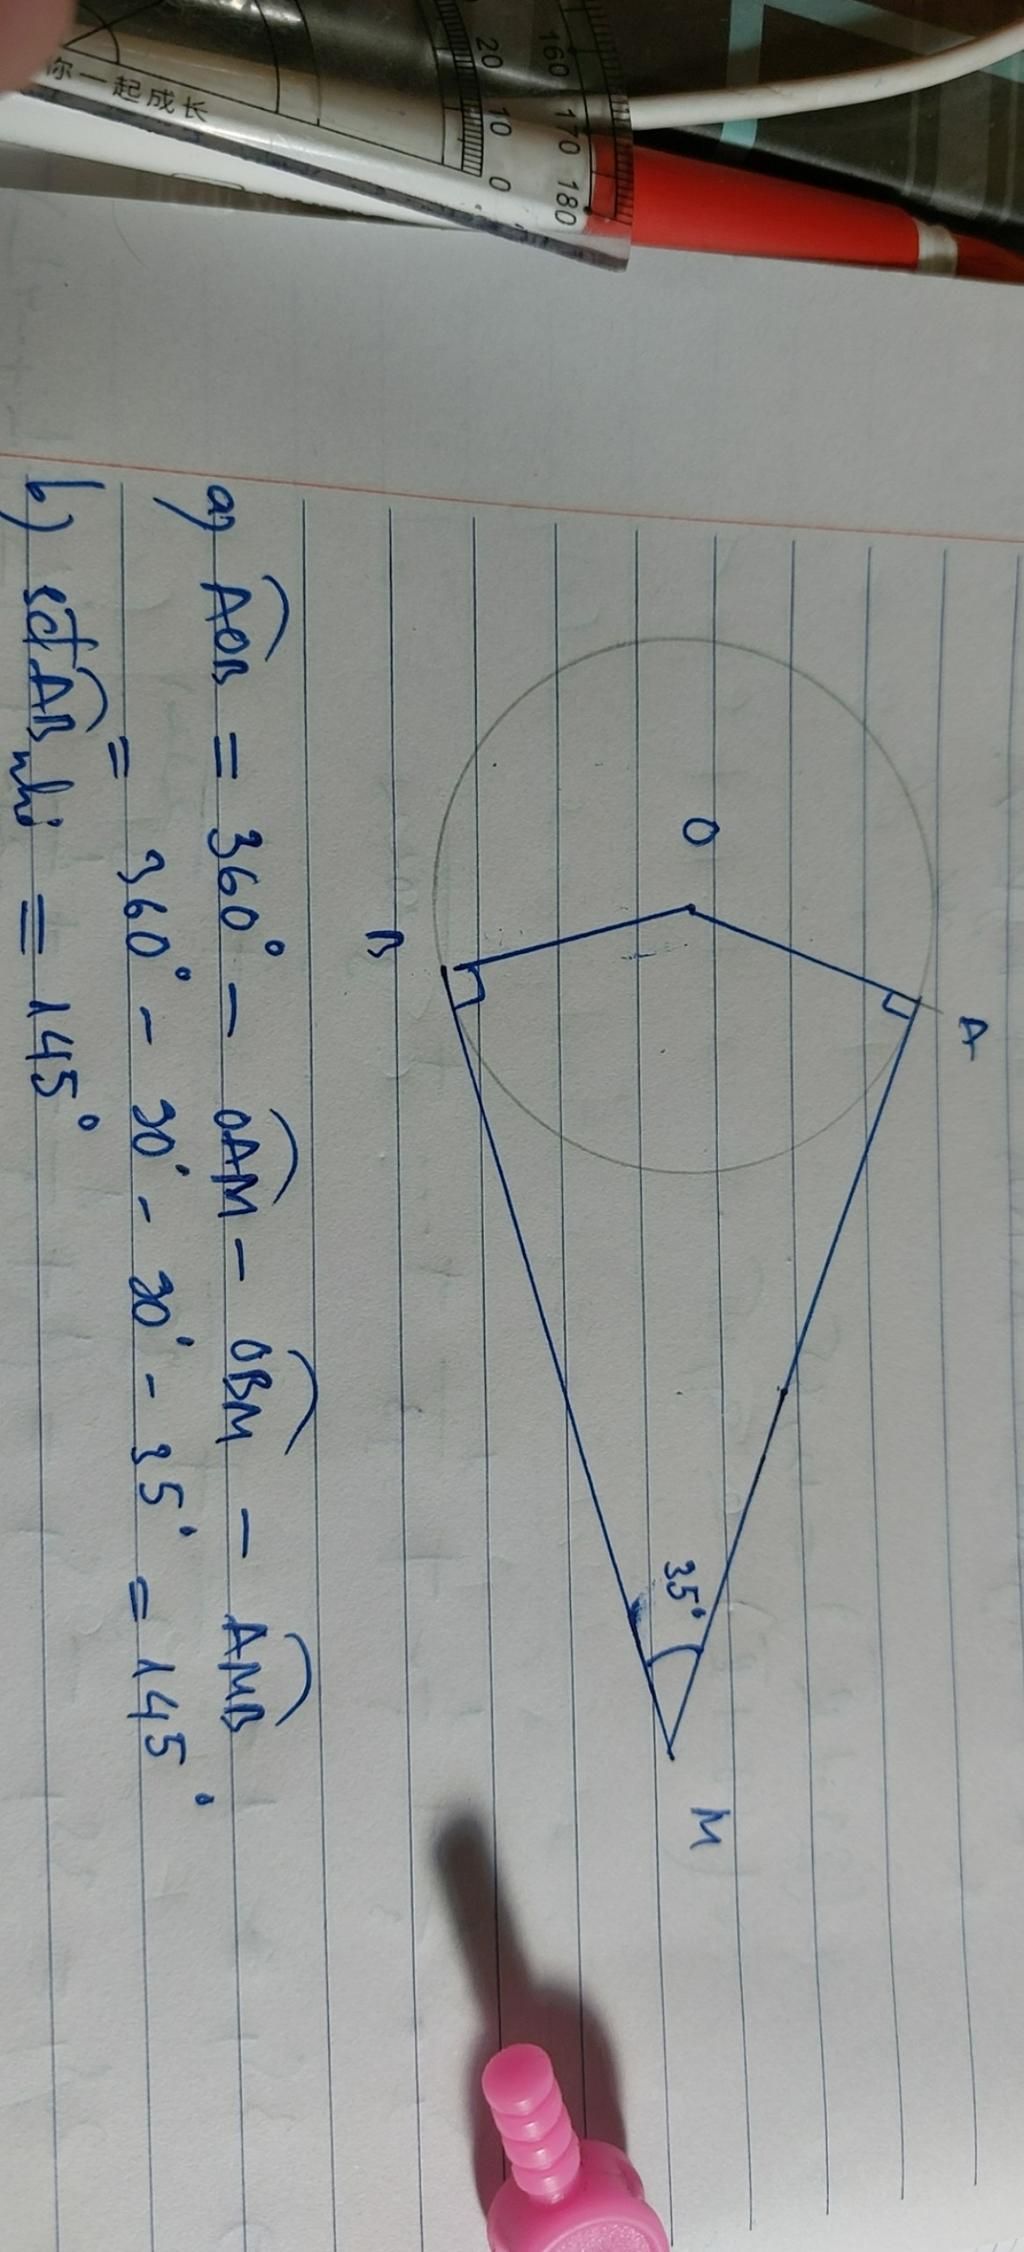 你一起成长
20 10 0
160 170 180
A
O
B
35°
M
a) AOB = 360° - OAM - OBM - AMB
= 360° - 90° - 90° - 35° = 145°
b) sđAB nhỏ = 145°